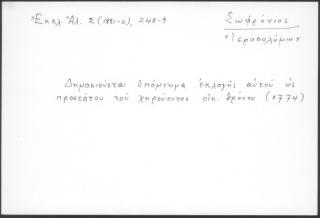 Ἐκκλ. Ἀλ. 2 (1881-2), 248-9
Σωφρόνιος
Ἱεροσολύμων
Δημοσιεύεται ὑπόμνημα ἐκλογῆς αὐτοῦ ὡς
προστάτου τοῦ χηρεύοντος οἰκ. θρόνου (1774)